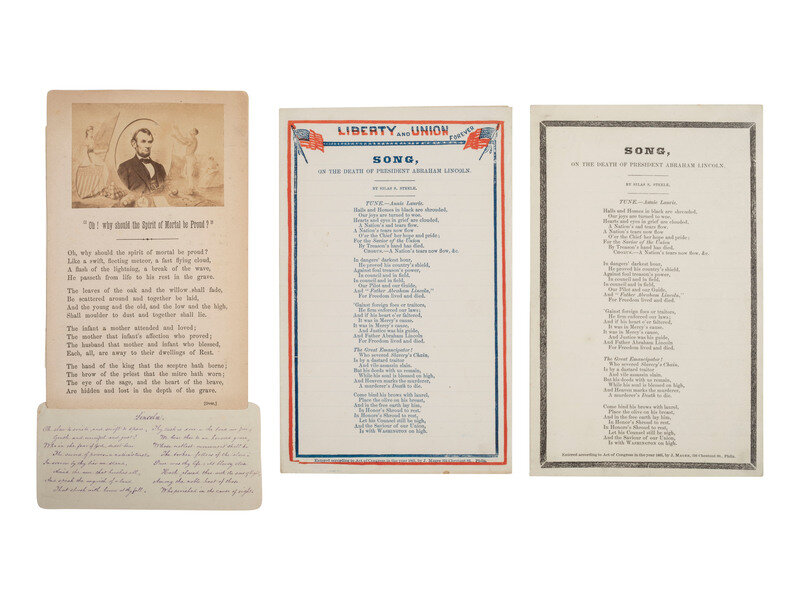 "Oh! why should the Spirit of Mortal be Proud?"
Oh, why should the spirit of mortal be proud?
Like a swift, fleeting meteor, a fast flying cloud,
A flash of the lightning, a break of the wave,
He passeth from life to his rest in the grave.
The leaves of the oak and the willow shall fade,
Be scattered around and together be laid,
And the young and the old, and the low and the high,
Shall moulder to dust and together shall lie.
The infant a mother attended and loved;
The mother that infant's affection who proved;
The husband that mother and infant who blessed,
Each, all, are away to their dwellings of Rest.
The hand of the king that the sceptre hath borne;
The brow of the priest that the mitre hath worn;
The eye of the sage, and the heart of the brave,
Are hidden and lost in the depth of the grave.
[OVER.]
Lincoln.
Oh slow to smite and swift to spare,
Gentle and merciful and just!
Who in the fear of God didst bear
The sword of power a nation's trust.
In sorrow by thy bier we stand,
Amid the awe that hushes all,
And speak the anguish of a land
That shook with horror at thy fall.
Thy task is done the bond are free,
We bear thee to an honored grave,
Whose noblest monument shall be
The broken fetters of the slave.
Pure was thy life its bloody close
Hath placed thee with the sons of light
Among the noble host of those
Who perished in the cause of right.
LIBERTY AND UNION FOREVER
SONG,
ON THE DEATH OF PRESIDENT ABRAHAM LINCOLN.
BY SILAS S. STEELE.
TUNE.—Annie Laurie.
Halls and Homes in black are shrouded,
Our joys are turned to woe.
Hearts and eyes in grief are clouded,
A Nation's sad tears flow.
A Nation's tears now flow
O'er the Chief her hope and pride;
For the Savior of the Union
By Treason's hand has died.
CHORUS.—A Nation's tears now flow, &c.
In dangers' darkest hour,
He proved his country's shield,
Against foul treason's power,
In council and in field.
In council and in field,
Our Pilot and our Guide,
And "Father Abraham Lincoln,"
For Freedom lived and died.
'Gainst foreign foes or traitors,
He firm enforced our laws;
And if his heart e'er faltered,
It was in Mercy's cause.
It was in Mercy's cause,
And Justice was his guide,
And Father Abraham Lincoln
For Freedom lived and died.
The Great Emancipator!
Who severed Slavery's Chain,
Is by a dastard traitor
And vile assassin slain.
But his deeds with us remain,
While his soul is blessed on high,
And Heaven marks the murderer,
A murderer's Death to die.
Come bind his brows with laurel,
Place the olive on his breast,
And in the free earth lay him,
In Honor's Shroud to rest,
In Honor's Shroud to rest,
Let his Counsel still be nigh,
And the Saviour of our Union,
Is with WASHINGTON on high.
Entered according to Act of Congress in the year 1865, by J. MAGEE, 316 Chestnut St., Phila.
SONG,
ON THE DEATH OF PRESIDENT ABRAHAM LINCOLN.
BY SILAS S. STEELE.
TUNE.—Annie Laurie.
Halls and Homes in black are shrouded,
Our joys are turned to woe.
Hearts and eyes in grief are clouded,
A Nation's sad tears flow.
A Nation's tears now flow
O'er the Chief her hope and pride;
For the Savior of the Union
By Treason's hand has died.
CHORUS.—A Nation's tears now flow, &c.
In dangers' darkest hour,
He proved his country's shield,
Against foul treason's power,
In council and in field.
In council and in field,
Our Pilot and our Guide,
And "Father Abraham Lincoln,"
For Freedom lived and died.
'Gainst foreign foes or traitors,
He firm enforced our laws;
And if his heart e'er faltered,
It was in Mercy's cause.
It was in Mercy's cause,
And Justice was his guide,
And Father Abraham Lincoln
For Freedom lived and died.
The Great Emancipator!
Who severed Slavery's Chain,
Is by a dastard traitor
And vile assassin slain.
But his deeds with us remain,
While his soul is blessed on high,
And Heaven marks the murderer,
A murderer's Death to die.
Come bind his brows with laurel,
Place the olive on his breast,
And in the free earth lay him,
In Honor's Shroud to rest,
In Honor's Shroud to rest,
Let his Counsel still be nigh,
And the Saviour of our Union,
Is with WASHINGTON on high.
Entered according to Act of Congress in the year 1865, by J. MAGEE, 316 Chestnut St., Phila.